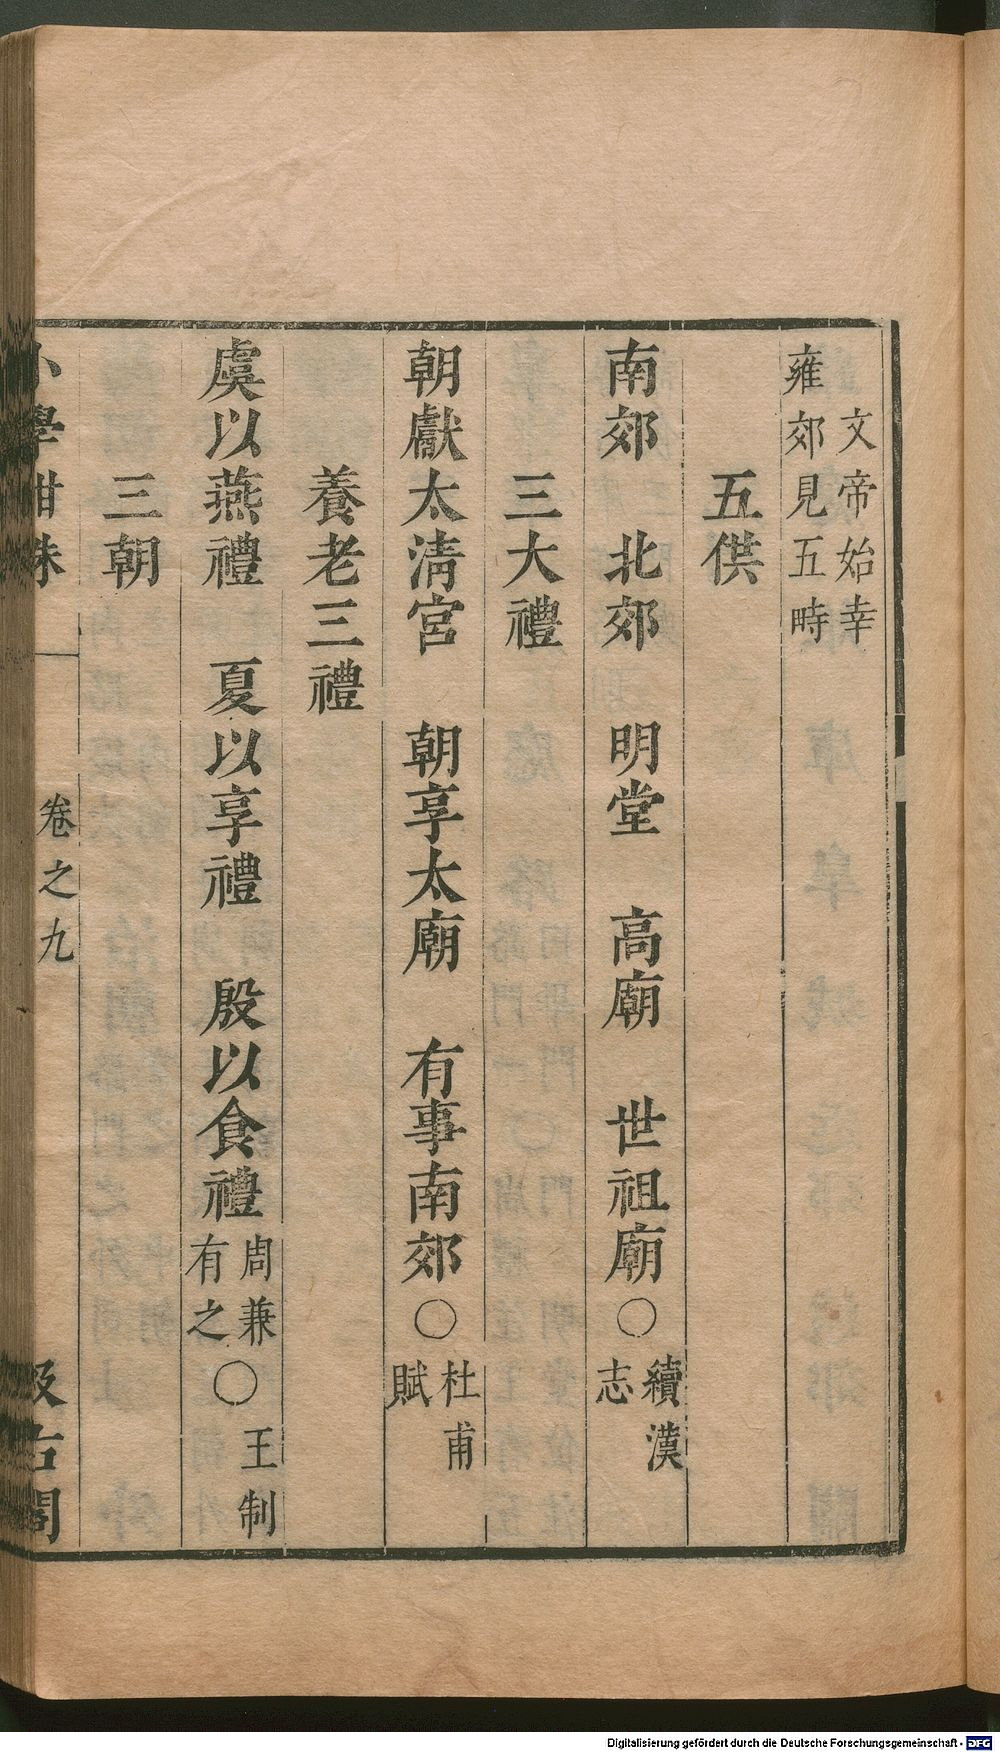 文帝始幸
雍郊見五畤
五供
南郊　北郊　明堂　高廟　世祖廟○續漢志
三大禮
朝獻太淸宮　朝享太廟　有事南郊○杜甫賦
養老三禮
虞以燕禮　夏以享禮　殷以食禮周兼有之○王制
三朝
小學紺珠　卷之九　汲古閣
Digitalisierung gefördert durch die Deutsche Forschungsgemeinschaft - DFG